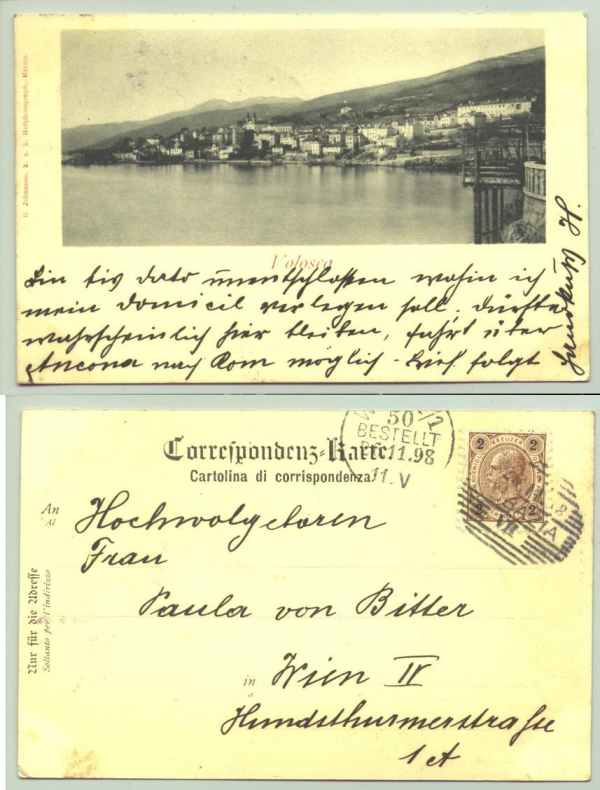 Volosca
Bin bis dato unentschlossen wohin ich
mein Domicil verlegen soll, dürfte
wahrscheinlich hier bleiben, fahrt über
Ancona nach Rom möglich - Brief folgt
Correspondenz-Karte
Cartolina di corrispondenza
50
BESTELLT
11.98
11.V
2 KREUZER 2
2 2
An
Al
Hochwolgeboren
Frau
Paula von Bitter
in Wien IV
Hundsthurmerstraſse
1 A
Nur für die Adresse
Soltanto per l'indirizzo